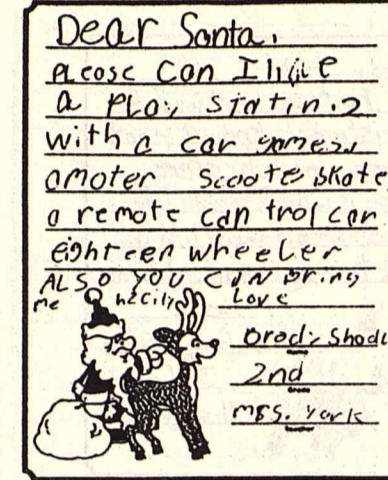 Dear Santa,
Please Can I
a Play Statin.2
with a car games,
amoter Scoote Skate
a remote can trol car
eighteen wheeler
ALSO YOU CAN Bring
me
Love
Brady
2nd
Mrs. York